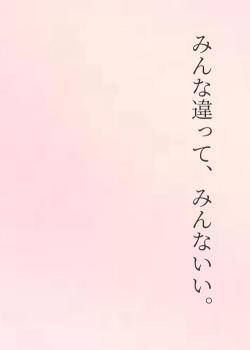 みんな違って、みんないい。